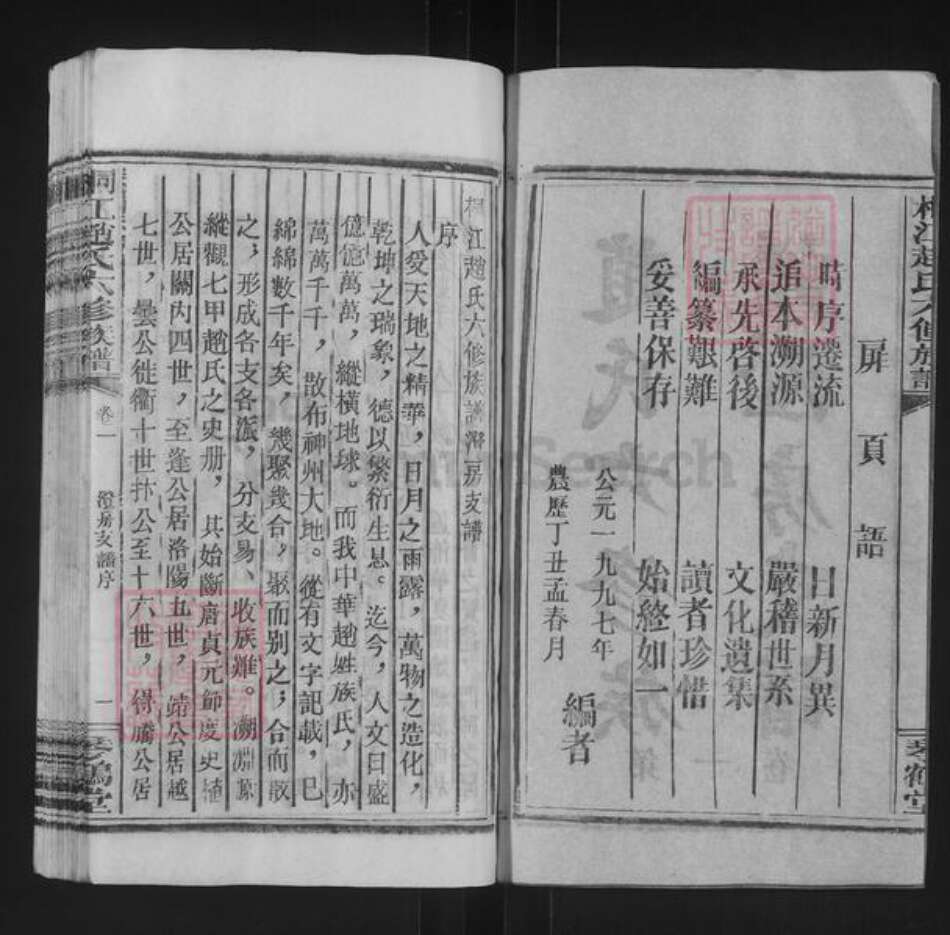 桐江趙氏六修族譜
琴鶴堂
扉頁語
時序遷流 日新月異
追本溯源 嚴稽世系
承先啓後 文化遺集
編纂艱難 讀者珍惜
妥善保存 始終如一
公元一九九七年
農歷丁丑孟春月
編者
桐江趙氏六修族譜澄房支譜
序
人受天地之精華，日月之雨露，萬物之造化，
乾坤之瑞象，德以繁衍生息。迄今，人文日盛
億億萬萬，縱橫地球。而我中華趙姓族氏，亦
萬萬千千，散布神州大地。從有文字記載，已
綿綿數千年矣，幾聚幾合，聚而别之；合而散
之，形成各支各派，分支易、收族難。溯淵源
縱觀七甲趙氏之史册，其始斷唐貞元節度史植
公居關内四世，至逢公居洛陽五世，靖公居越
七世，曇公徙衢十世抃公至十六世，得驎公居
桐江趙氏六修族譜
卷一
澄房支譜序
一
琴鶴堂